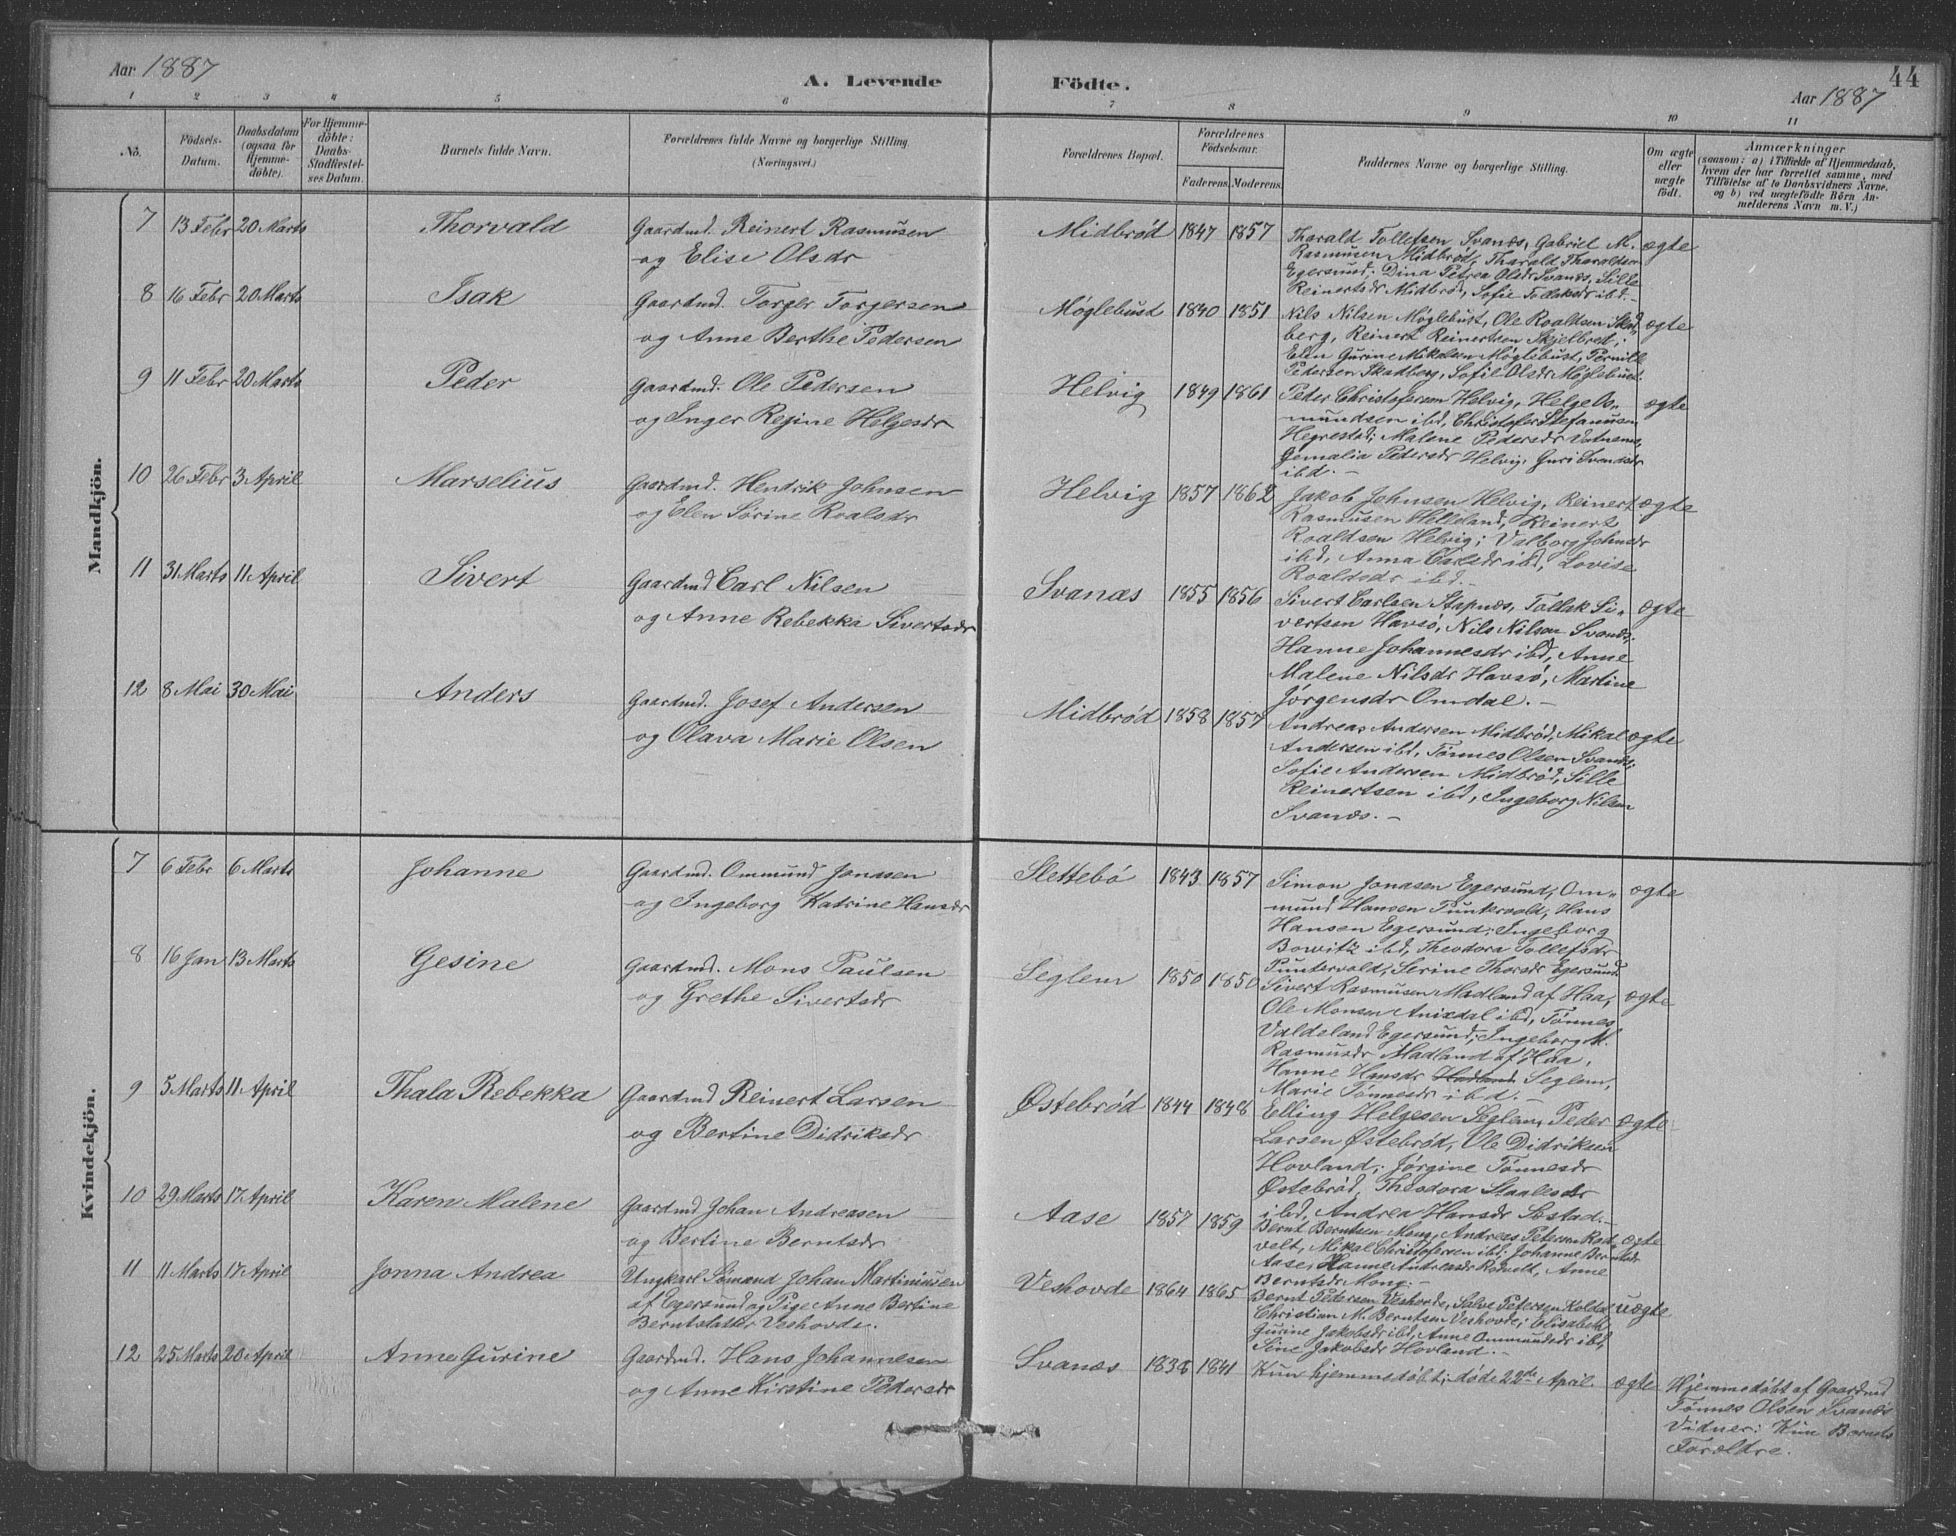 Aar 1887
A. Levende Födte.
Aar 1887
44
1 2 3 4 5 6 7 8 9 10 11
No.
Födsels-Datum.
Daabsdatum (ogsaa for Hjemme-döbte).
For Hjemme-döbte: Daabs-Stadfæstel-ses Datum.
Barnets fulde Navn.
Forældrenes fulde Navne og borgerlige Stilling.
(Næringsvei.)
Forældrenes Bopæl.
Forældrenes Födselsaar.
Faderens. Moderens.
Faddernes Navne og borgerlige Stilling.
Om ægte eller uægte födt.
Anmærkninger
(saasom: a) i Tilfælde af Hjemmedaab, hvem der har forrettet samme, med Tilföielse af to Daabsvidners Navne, og b) ved uægtefödte Börn Anmelderens Navn m. V.)
Mandkjön.
7 13 Febr 20 Marts Thorvald Gaardmd. Reinert Rasmusen
og Elise Olsdr
Midbrød 1847 1857 Tharald Tollefsen Svanæs, Gabriel M. ægte
Rasmusen Midbrød, Tharald Tharaldsen
Egersund; Dina Petrea Olsdr Svanæs, Sille
Reinertsdr Midbrød, Sofie Tollaksdr ibd.-
8 16 Febr 20 Marts Isak Gaardmd. Torger Torgersen
og Anne Berthe Pedersen
Møglebust 1840 1851 Nils Nilsen Møglebust, Ole Roaldsen Skad„ ægte
berg, Reinert Reinertsen Skjelbred;
Elen Gurine Mikalsen Møglebust, Pernille
Pedersen Skadberg, Sofie Olsdr Møglebust.
9 11 Febr 20 Marts Peder Gaardmd. Ole Pedersen
og Inger Regine Helgesdr
Helvig 1849 1861 Peder Christofersen Helvig, Helge Os„ ægte
mundsen ibd, Christofer Stefanusen
Hegrestad; Malene Pedersdr
Gemalia Pedersdr Helvig, Guri Svendsdr
ibd.-
10 26 Febr 3 April Marselius Gaardmd. Hendrik Johnsen
og Elen Sørine Roalsdr
Helvig 1857 1862 Jakob Johnsen Helvig, Reinert ægte
Rasmusen Helleland, Reinert
Roaldsen Helvig; Valborg Johnsdr
ibd, Anna Carlsdr ibd, Lovise
Roaldsdr ibd.-
11 31 Marts 11 April Sivert Gaardmd Carl Nilsen
og Anne Rebekka Sivertsdr
Svanæs 1855 1856 Sivert Carlsen Stapnæs, Tollak Si„ ægte
vertsen Havsø, Nils Nilsen Svanæs;
Hanne Johannesdr ibd, Anne
Malene Nilsdr Havsø, Martine
Jørgensdr Omdal.-
12 8 Mai 30 Mai Anders Gaardmd. Josef Andersen
og Olava Marie Olsen
Midbrød 1858 1857 Andreas Andersen Midbrød, Mikal ægte
Andersen ibd, Tønnes Olsen Svanæs;
Sofie Andersen Midbrød, Sille
Reinertsen ibd, Ingeborg Nilsen
Svanæs.-
Kvindekjön.
7 6 Febr 6 Marts Johanne Gaardmd. Ommund Jonassen
og Ingeborg Katrine Hansdr
Slettebö 1843 1857 Simon Jonasen Egersund, Om„ ægte
mund Hansen Puntervold, Hans
Hansen Egersund; Ingeborg
Bowitz ibd, Theodora Tollefsdr
Puntervold, Serine Thorsdr Egersund
8 16 Jan 13 Marts Gesine Gaardmd. Mons Paulsen
og Grethe Sivertsdr
Seglem 1850 1850 Sivert Rasmusen Madland af Haa, ægte
Ole Monsen Anixdal ibd, Tønnes
Valdeland Egersund; Ingeborg M.
Rasmusdr Madland af Haa,
Hanne Hansdr Seglem,
Marie Tønnesdr ibd.-
9 5 Marts 11 April Thala Rebekka Gaardmd Reinert Larsen
og Bertine Didriksdr
Østebrød 1844 1848 Elling Helgesen Seglem, Peder ægte
Larsen Østebrød, Ole Didriksen
Hovland; Jørgine Tønnesdr
Østebrød, Theodora Staalesdr
ibd, Andrea Hansdr Sæstad.-
10 29 Marts 17 April Karen Malene Gaardmd Johan Andreasen
og Bertine Berntsdr
Aase 1857 1859 Bernt Berntsen Mong, Andreas Petersen Rod„ ægte
velt, Mikal Christofersen ibd; Johanne Berntsdr
Aase, Hanne Andreasdr Rodvelt, Anne
Berntsdr Mong.-
11 11 Marts 17 April Jonna Andrea Ungkarl Sømand Johan Martiniusen
af Egersund og Pige Anne Bertine
Berntsdatter Veshovde.
Veshovde 1864 1865 Bernt Pedersen Veshovde, Salve Petersen Koldal uægte
Christian M. Berntsen Veshovde; Elisabeth
Gurine Jakobsdr ibd, Anne Ommundsdr ibd,
Sine Jakobsdr Hovland.-
12 25 Marts 20 April Anne Gurine Gaardmd. Hans Johannesen
og Anne Kirstine Pedersdr
Svanæs 1838 1841 Kun hjemmedøbt; døde 22de April. ægte
Hjemmedøbt af Gaardmd
Tønnes Olsen Svanæs
Vidner: Kun Barnets
Forældre.